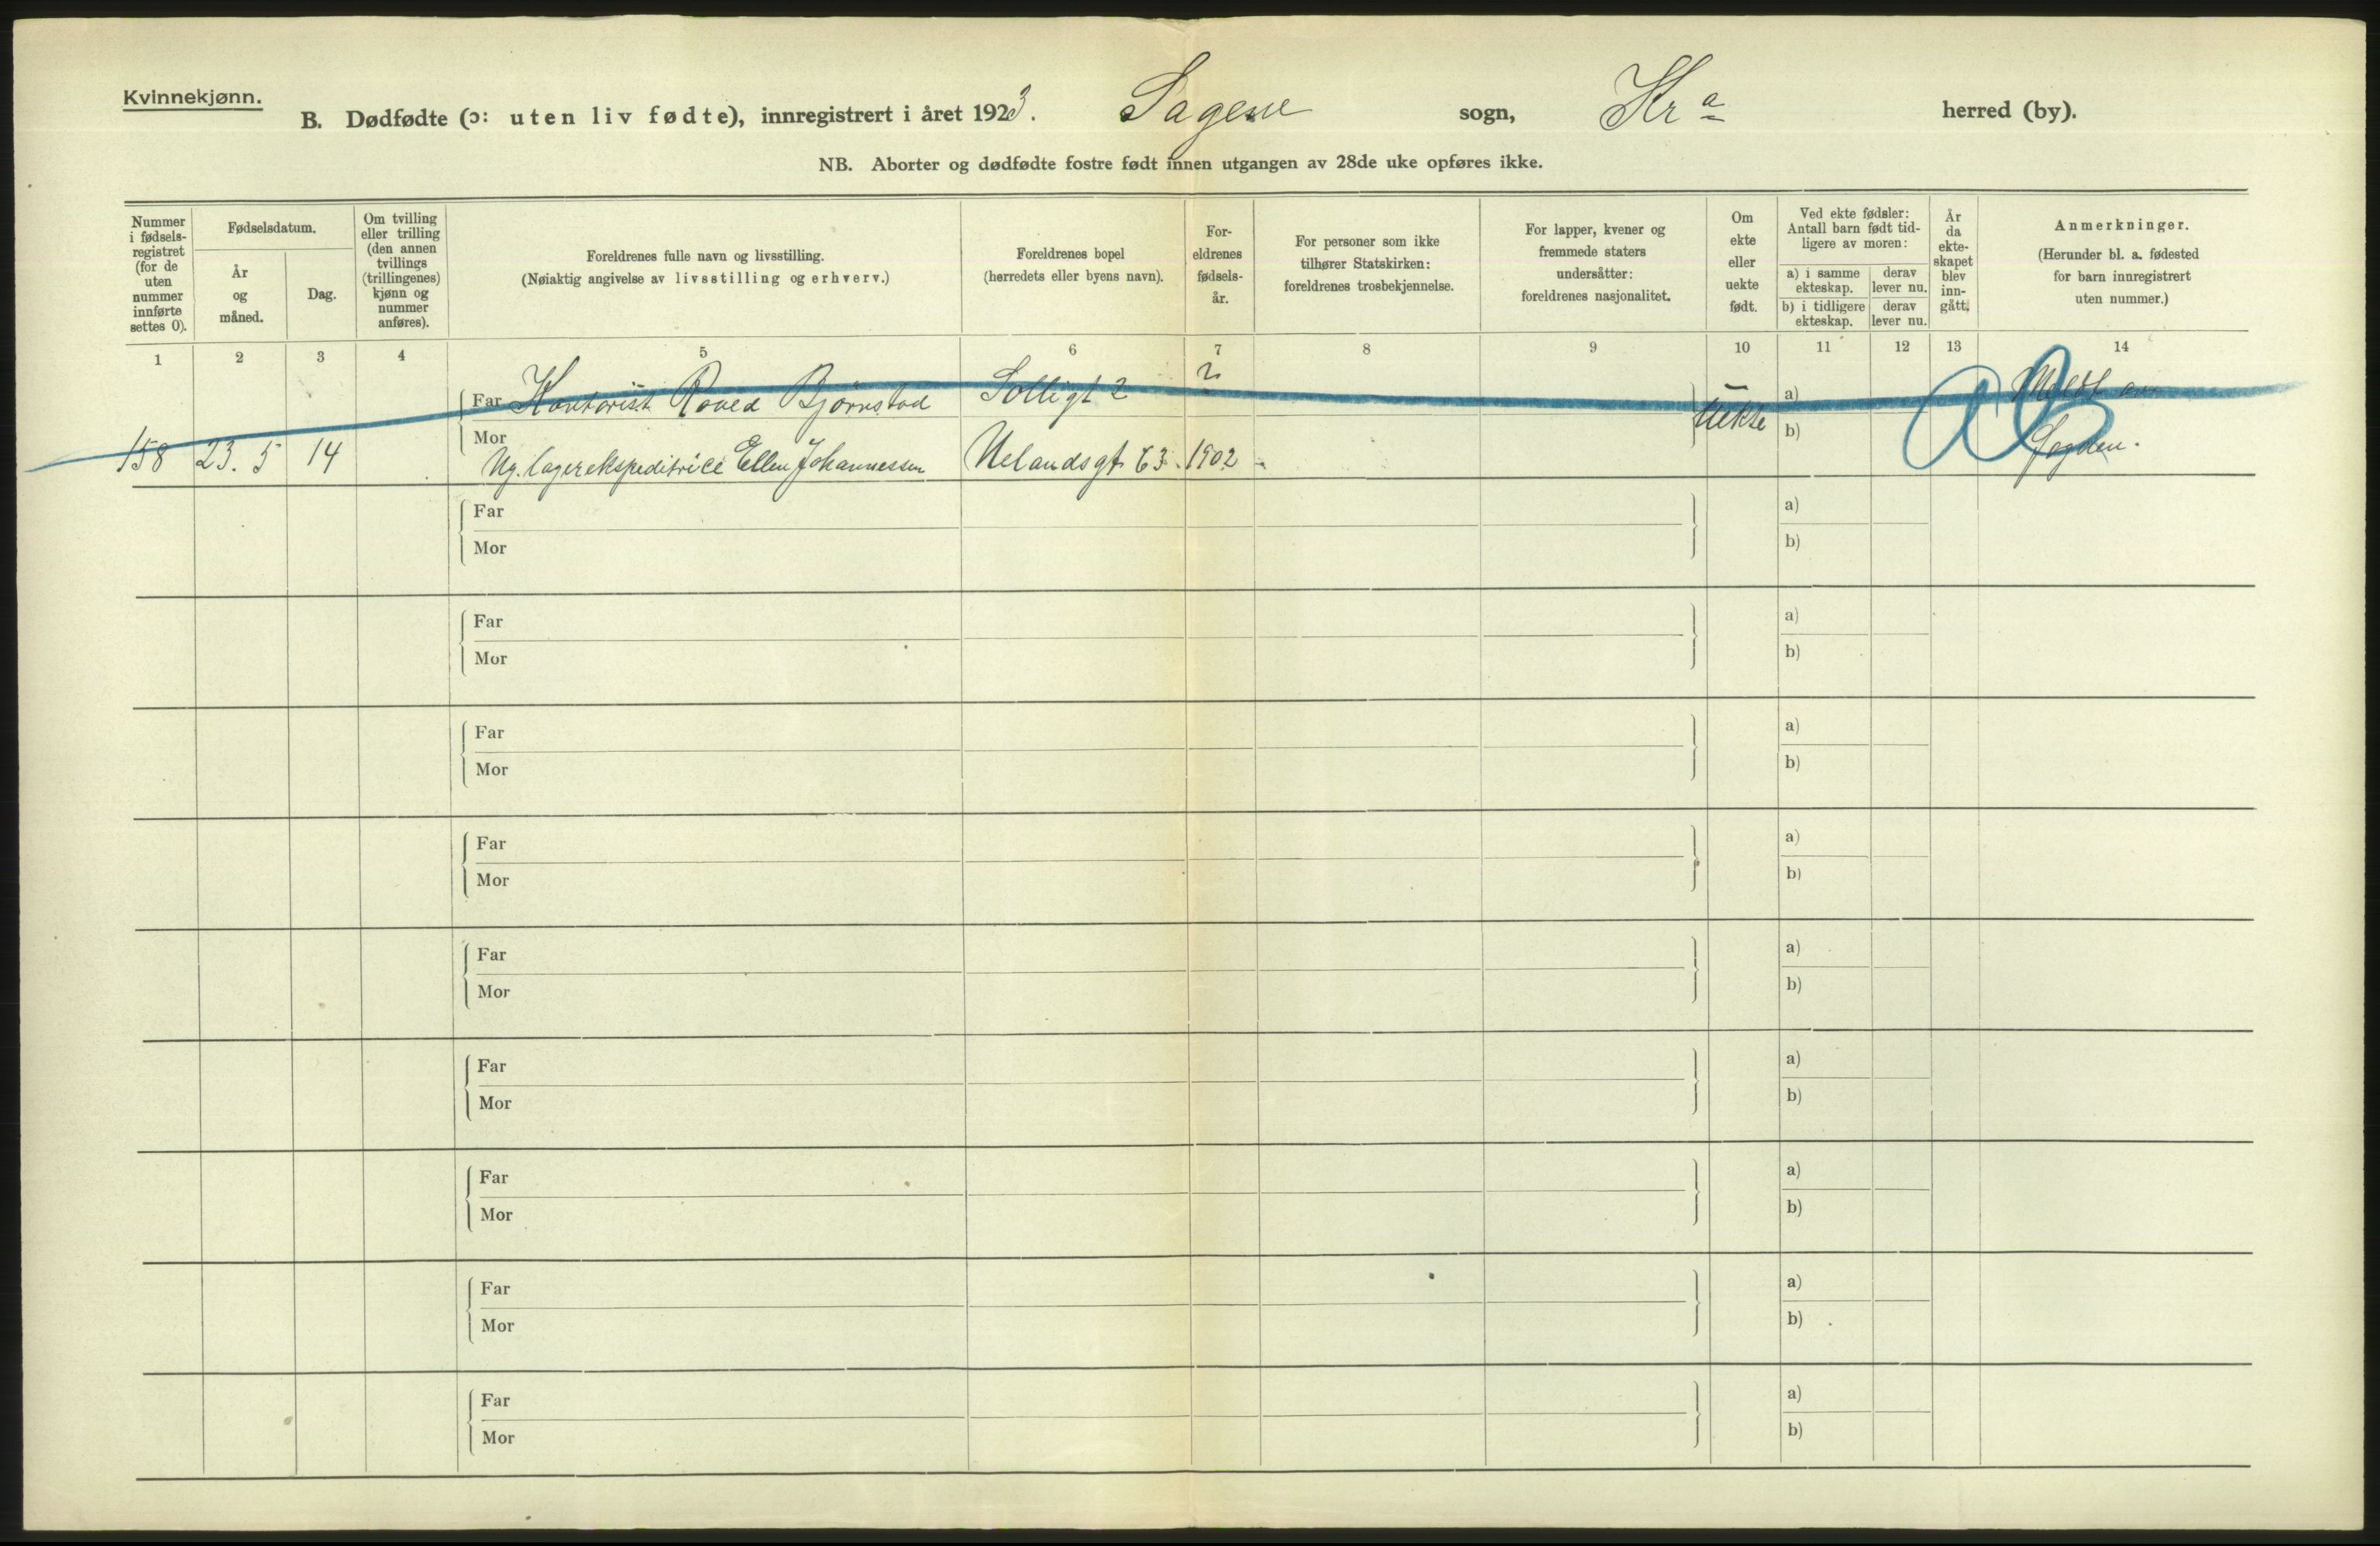 Kvinnekjønn.
B. Dødfødte (ɔ: uten liv fødte), innregistrert i året 1923. Sagene sogn, Kra herred (by).
NB. Aborter og dødfødte fostre født innen utgangen av 28de uke opføres ikke.
Nummer
i fødsels-
registret
(for de
uten
nummer
innførte
settes 0).
Fødselsdatum.
År
og
måned.
Dag.
Om tvilling
eller trilling
(den annen
tvillings
(trillingenes)
kjønn og
nummer
anføres).
Foreldrenes fulle navn og livsstilling.
(Nøiaktig angivelse av livsstilling og erhverv.)
Foreldrenes bopel
(herredets eller byens navn).
For-
eldrenes
fødsels-
år.
For personer som ikke
tilhører Statskirken:
foreldrenes trosbekjennelse.
For lapper, kvener og
fremmede staters
undersåtter:
foreldrenes nasjonalitet.
Om
ekte
eller
uekte
født.
Ved ekte fødsler:
Antall barn født tid-
ligere av moren:
a) i samme
ekteskap.
derav
lever nu.
b) i tidligere
ekteskap.
derav
lever nu.
År
da
ekte-
skapet
blev
inn-
gått.
Anmerkninger.
(Herunder bl. a. fødested
for barn innregistrert
uten nummer.)
1 2 3 4 5 6 7 8 9 10 11 12 13 14
Far Kontorist Bjørnstad Solligt 2 ? Uekte a) Meldt av
Mor b)
158 23. 5 14 Ug. lagerekspeditrice Ellen Johannessen Uelandsgt 63. 1902 Jogden.
Far a)
Mor b)
Far a)
Mor b)
Far a)
Mor b)
Far a)
Mor b)
Far a)
Mor b)
Far a)
Mor b)
Far a)
Mor b)
Far a)
Mor b)
Far a)
Mor b)